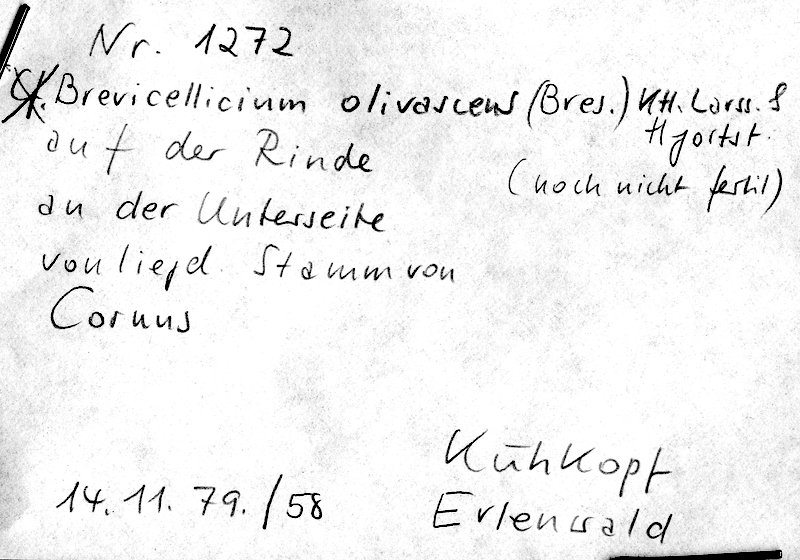 Nr. 1272
Brevicellicium olivascens (Bres.) K.H. Larss. &
Hjortst.
auf der Rinde
(noch nicht fertil)
an der Unterseite
von liegd. Stamm von
Cornus
Kühkopf
14.11.79./58
Erlenwald